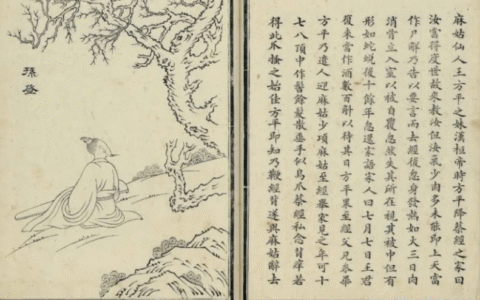 麻姑仙人王方平之妹漢祖帝時方平降蔡經之家曰
汝當得度世故來教汝但汝氣少肉多未能即上天當
作尸解乃告以要言而去經後忽身發熱如火三日肉
消骨立入室以被自覆忽然失其所在視其被中但有
形如蛇蛻後十餘年忽還家語家人曰七月七日王君
復來當作酒數百斛以待其日方平果至經父兄叅畢
方平乃遣人迎麻姑少頃麻姑至經舉家見之年可十
七八頂中作髻餘髮散垂手似鳥爪蔡經私念背癢若
得此爪搔之始佳方平即知乃鞭經背遂與麻姑辭去
孫登